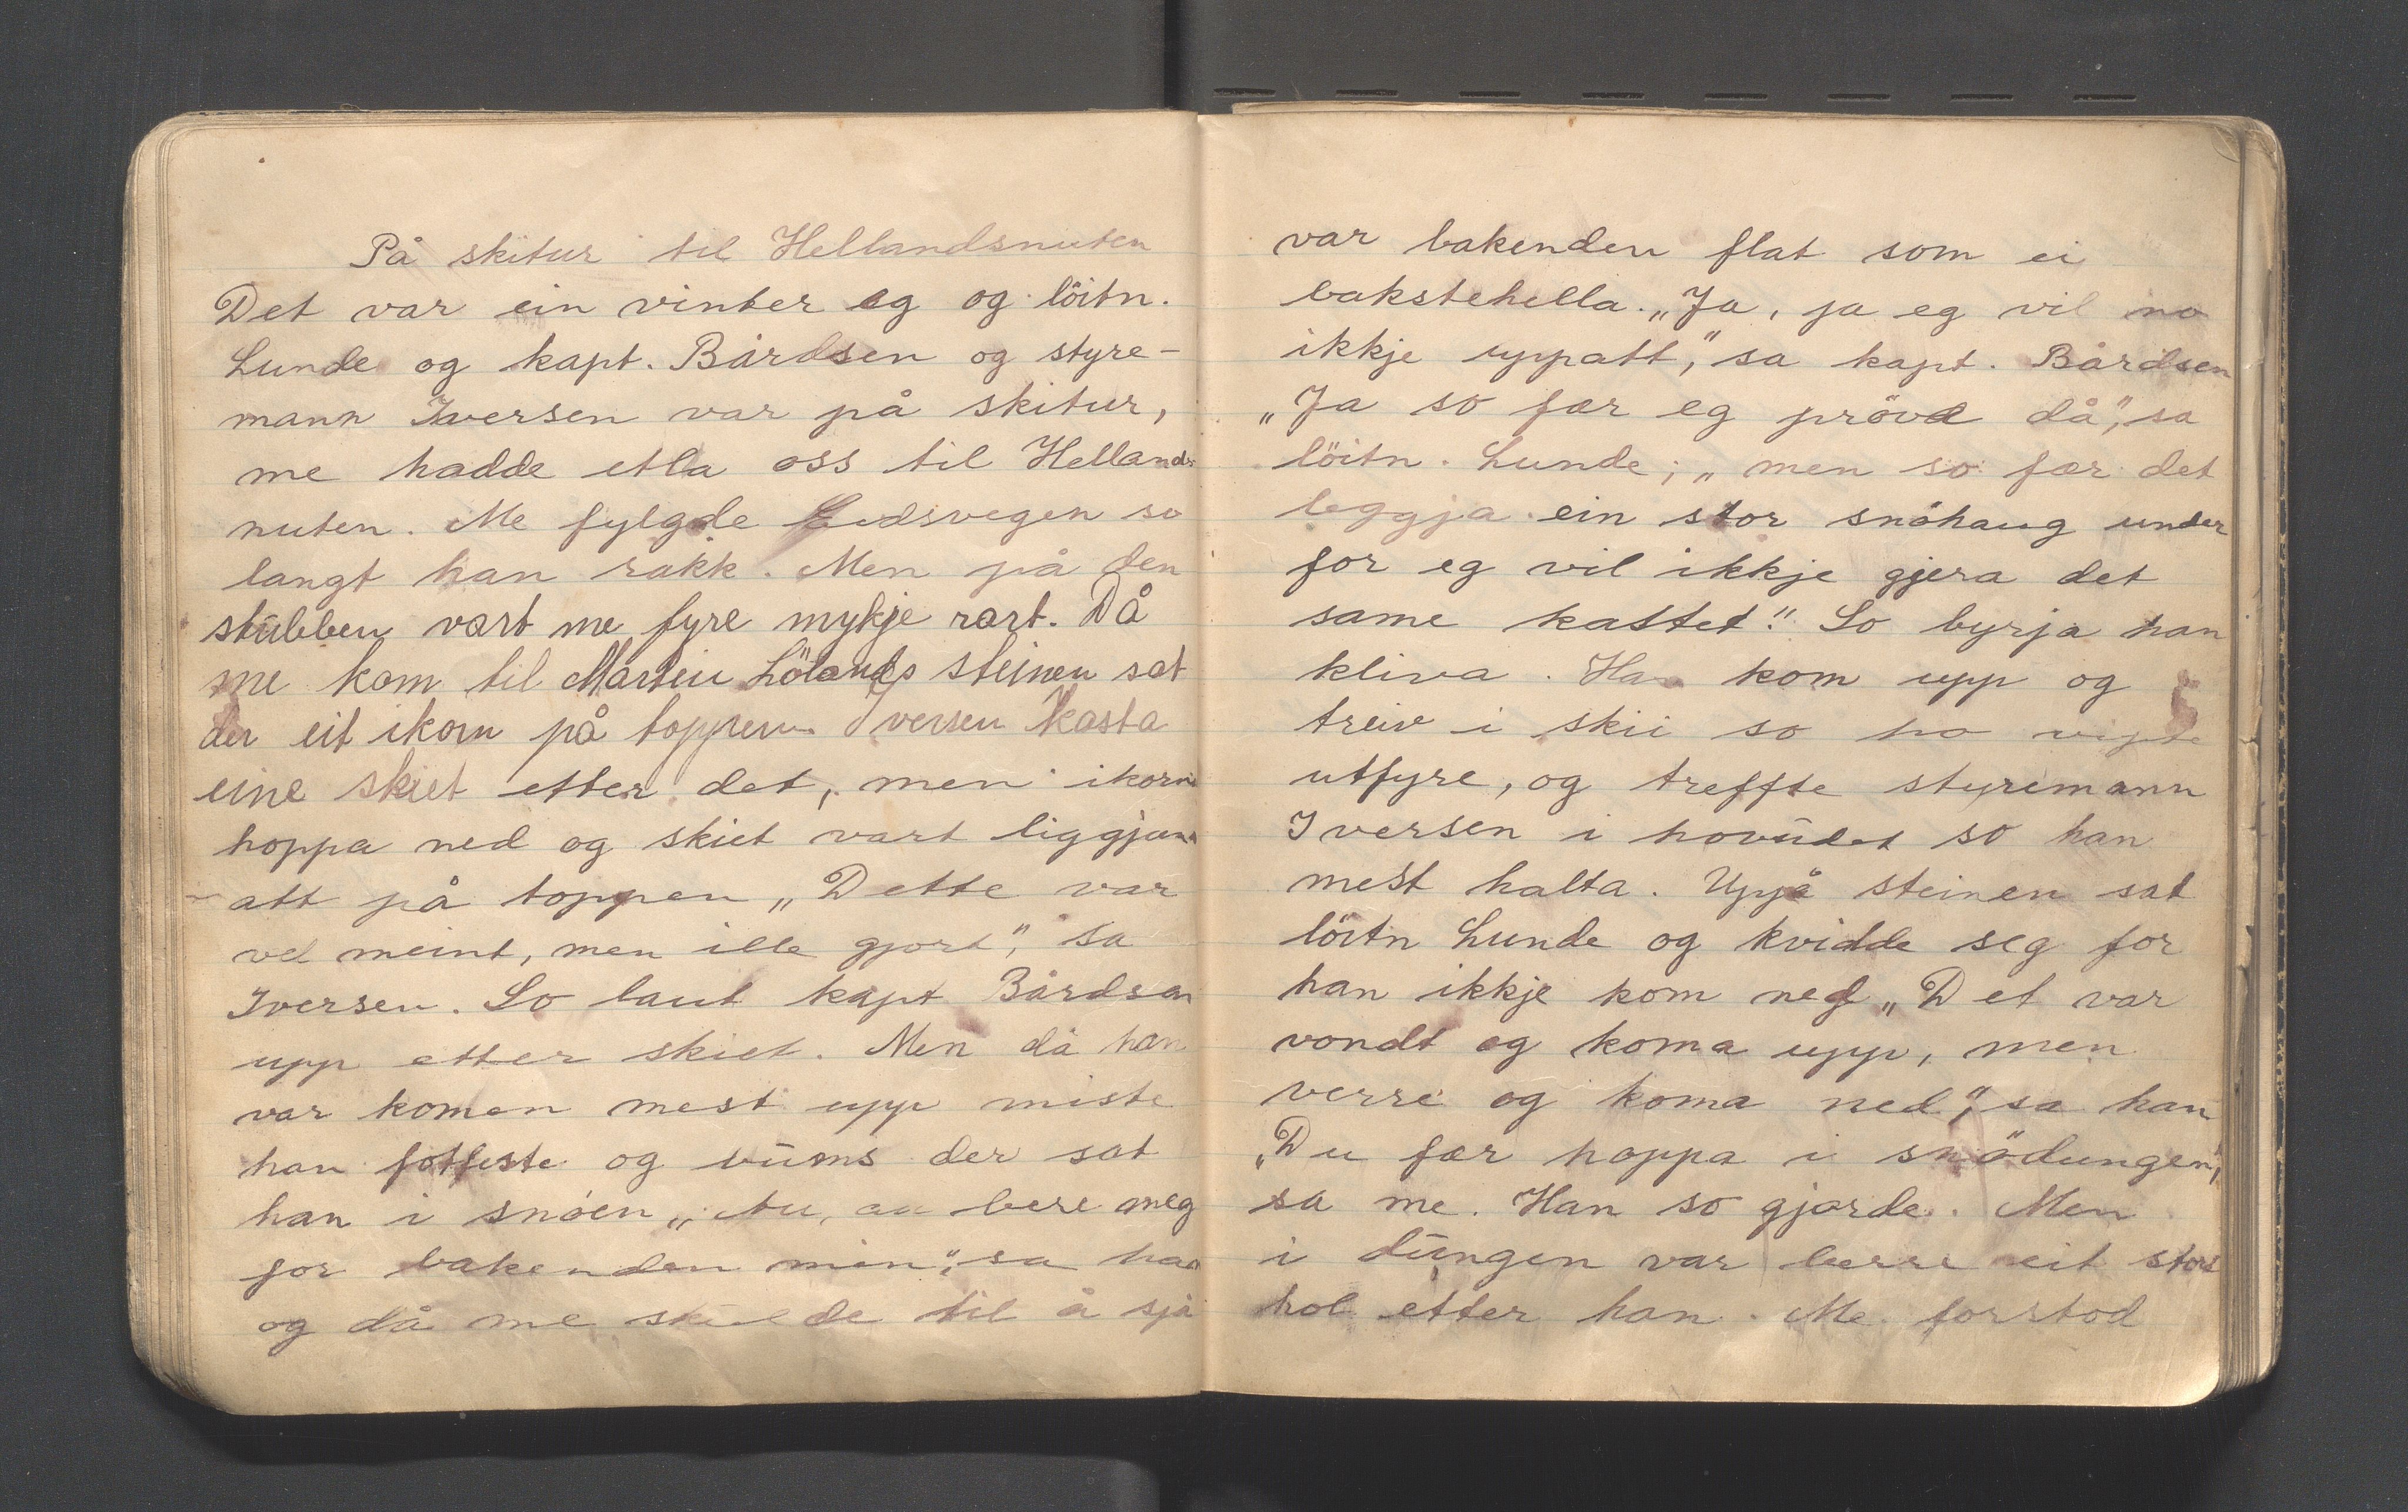 På skitur til Hellandsnuten
Det var ein vinter eg og löitn.
Lunde og kapt. Bårdsen og styre-
mann Iversen var på skitur,
me hadde etla oss til Hellands
nuten. Me fylgde so
langt han rakk. Men på den
stubben vart me fyre mykje rart. Då
me kom til Martin Lölands steinen sat
der eit ikorn på toppen. Iversen kasta
eine skiet etter det, men ikorn
hoppa ned og skiet vart liggjan
att på toppen „Dette var
vel meint, men ille gjort", sa
Iversen. So laut kapt Bårdsen
upp etter skiet. Men då han
var komen mest upp miste
han fotfeste og bums der sat
han i snöen „Au, au bere meg
for bakenden min", sa han
og då me skulde til å sjå
var bakenden flat som ei
bakstehella. „Ja, ja eg vil no
ikkje uppatt," sa kapt. Bårdsen
„Ja so fær eg pröva då", sa
löitn. Lunde; „men so fær det
leggja ein stor snöhaug under
for eg vil ikkje gjera det
same kastet." So byrja han
kliva. Han kom upp og
treiv i skii so ho
utfyre, og treffte styremann
Iversen i hovudet so han
mest halta. Uppå steinen sat
löitn Lunde og kvidde seg for
han ikkje kom ned „Det var
vondt og koma upp, men
verre og koma ned", sa han
„Du fær hoppa i snödungen",
sa me. Han so gjorde. Men
i dungen var berre eit stort
hol etter han. Me forstod